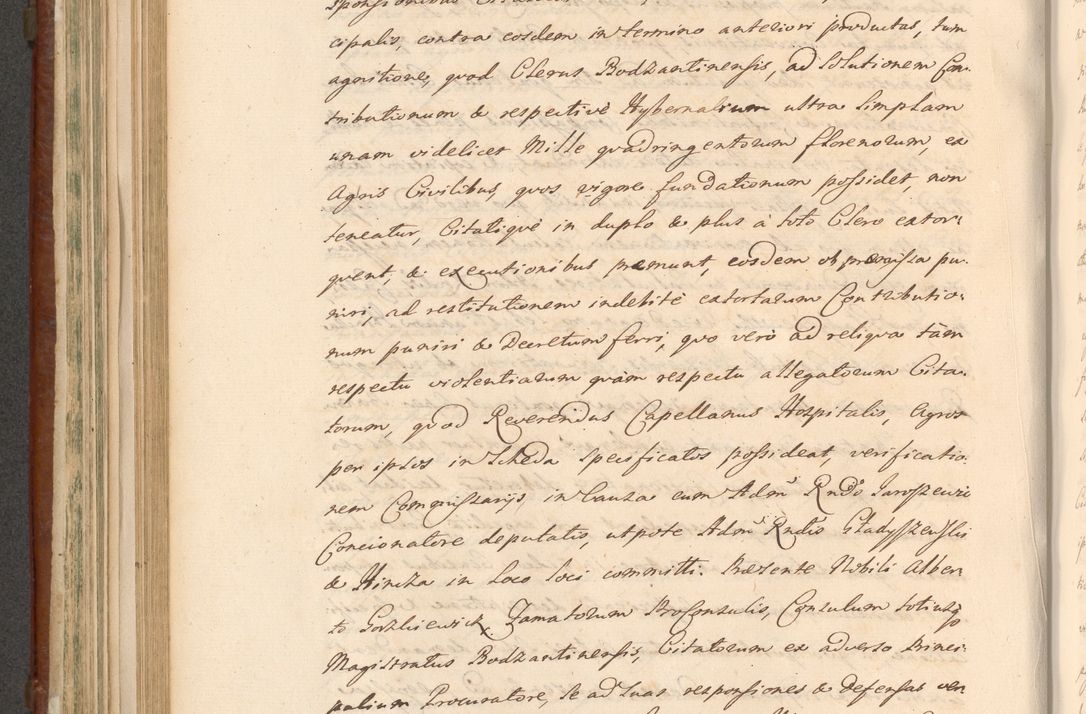 sponsionibus
cipalis, contra eosdem in termino anteriori productas, tum
agnitione, quod Clerus Bodzantinensis, ad Solutionem Con:
tributionum & respectivè Hybernalium ultra Simplam
unam videlicet Mille quadringentorum florenorum, ex
Agris Civilibus, quos vigore fundationum possidet, non
teneatur, Citatiquè in duplo & plus à toto Clero extor:
quent, & executionibus premunt, eosdem ob præmissa pu:
niri, ad restitutionem indebitè extortarum Contributio:
num puniri & Decretum ferri, quo verò ad reliqua tàm
respectu violentiarum quàm respectu allegatorum Cita:
torum, quod Reverendus Capellanus Hospitalis, Agros
per ipsos in Scheda specificatos possideat, verificatio:
nem Commissarijs, in Causa cum Adm Rndo Jaroszewic
Concionatore deputatis, utpote Adm Rndis Gładysszewski
& Hincza in Loco loci committi. Præsente Nobili Alber:
to Gorzkiewicz, Famatorum ProConsulis, Consulum totiusq
Magistratus Bodzantinensis, Citatorum ex adverso Princi:
palium Procuratore, se ad suas responsiones & defensas ver